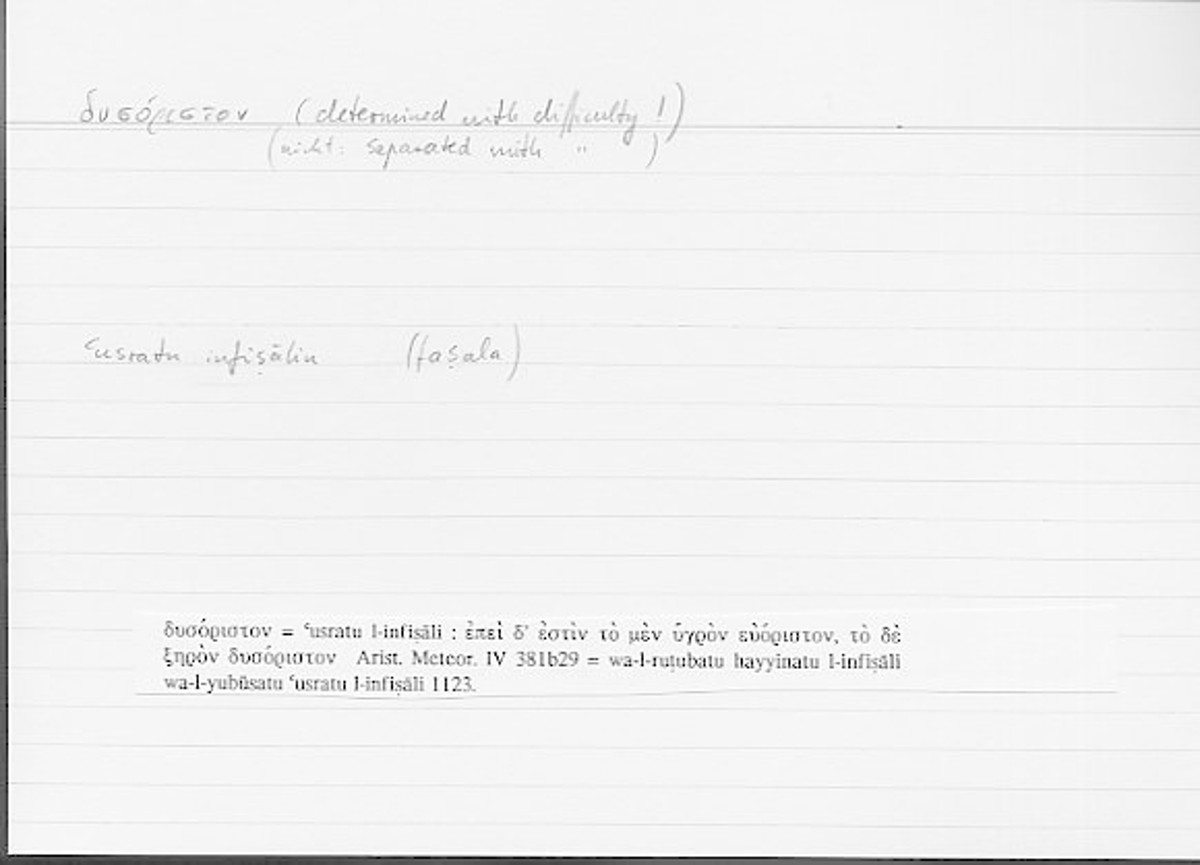 δυσόριστον (determined with difficulty!)
(nicht: separated with " )
ʿusratu infiṣālin (faṣala)
δυσόριστον = ʿusratu l-infiṣāli : ἐπεὶ δ' ἐστὶν τὸ μὲν ὑγρὸν εὐόριστον, τὸ δὲ
ξηρὸν δυσόριστον Arist. Meteor. IV 381b29 = wa-l-ruṭubatu hayyinatu l-infiṣāli
wa-l-yubūsatu ʿusratu l-infiṣāli 1123.